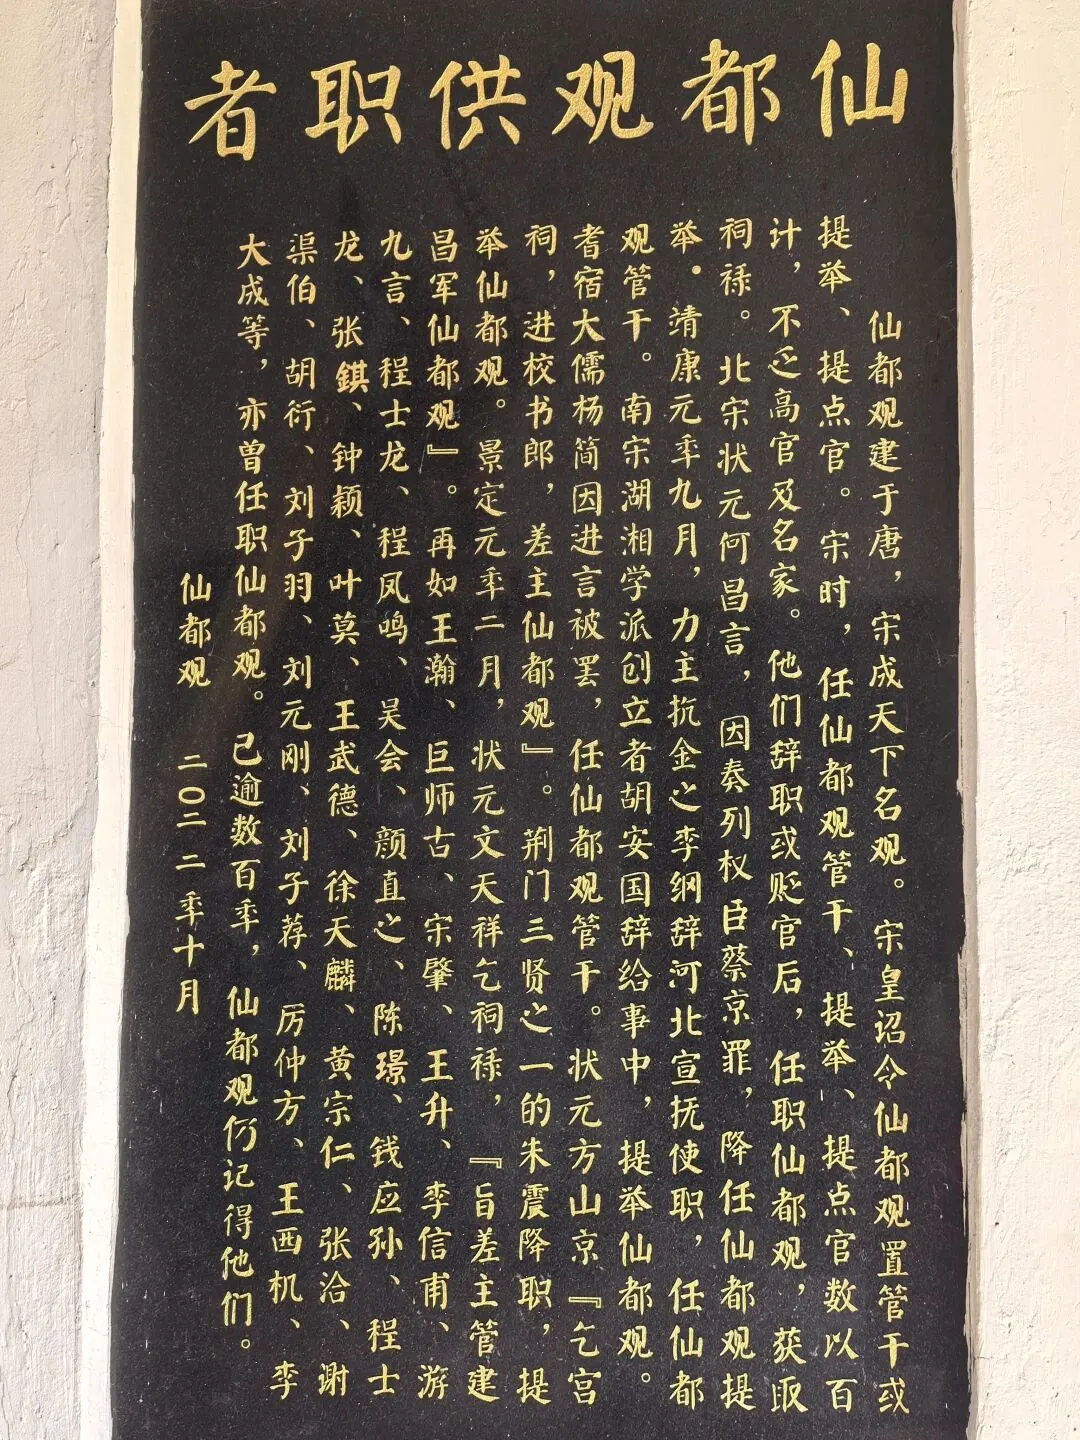 仙都观供职者
仙都观建于唐，宋成天下名观。宋皇诏令仙都观置管干或
提举、提点官。宋时，任仙都观管干、提举、提点官数以百
计，不乏高官及名家。他们辞职或贬官后，任职仙都观，获取
祠禄。北宋状元何昌言，因奏列权臣蔡京罪，降任仙都观提
举。靖康元年九月，力主抗金之李纲辞河北宣抚使职，任仙都
观管干。南宋湖湘学派创立者胡安国辞给事中，提举仙都观。
耆宿大儒杨简因进言被罢，任仙都观管干。状元方山京『乞宫
祠，进校书郎，差主仙都观』。荆门三贤之一的朱震降职，提
举仙都观。景定元年二月，状元文天祥乞祠禄，『旨差主管建
昌军仙都观』。再如王瀚、巨师古、宋肇、王升、李信甫、游
九言、程士龙、程凤鸣、吴会、颜直之、陈璟、钱应孙、程士
龙、张錤、钟颖、叶莫、王武德、徐天麟、黄宗仁、张洽、谢
渠伯、胡衍、刘子羽、刘元刚、刘子荐、厉仲方、王西机、李
大成等，亦曾任职仙都观。已逾数百年，仙都观仍记得他们。
仙都观 二〇二二年十月